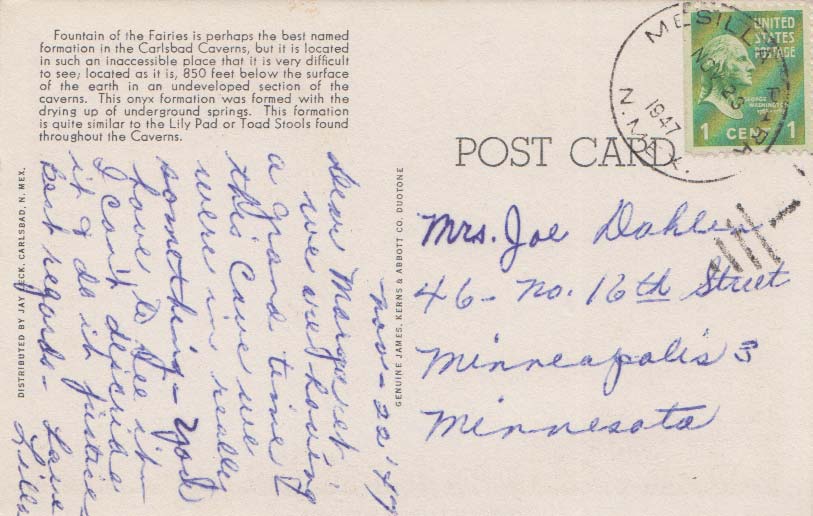 Fountain of the Fairies is perhaps the best named
formation in the Carlsbad Caverns, but it is located
in such an inaccessible place that it is very difficult
to see; located as it is, 850 feet below the surface
of the earth in an undeveloped section of the
caverns. This onyx formation was formed with the
drying up of underground springs. This formation
is quite similar to the Lily Pad or Toad Stools found
throughout the Caverns.
DISTRIBUTED BY JAY LECK, CARLSBAD, N. MEX.
Nov - 22 '47
Dear Margaret -
we are having
a grand time &
this Cave we
were in really
something - You'd
love to see it -
I can't describe
it & do it justice
Best regards - Love
Lills
GENUINE JAMES, KERNS & ABBOTT CO. DUOTONE
POST CARD
MESILLA PARK
NOV 23
1947
N. MEX.
UNITED
STATES
POSTAGE
GEORGE
WASHINGTON
1 CENT 1
Mrs. Joe Dahlen
46 - No. 16th Street
Minneapolis 3
Minnesota